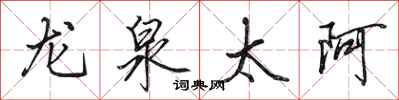 龙泉太阿
词典网